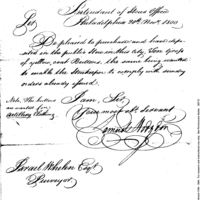 Intendant of Stores Office
Philadelphia 20th Novr 1800.
Sir,
Be pleased to purchase and have depo-
sited in the public Store in this City, Ten Groce
of yellow, Coat Buttons, the same being wanted
to enable the Storekeeper to comply with sundry
orders already issued.
I am, Sir,
Your most obt servant
Samuel Hodgdon
Note, The buttons
are wanted for
Artillery Clothing
Israel Whelen Esqr
Purveyor